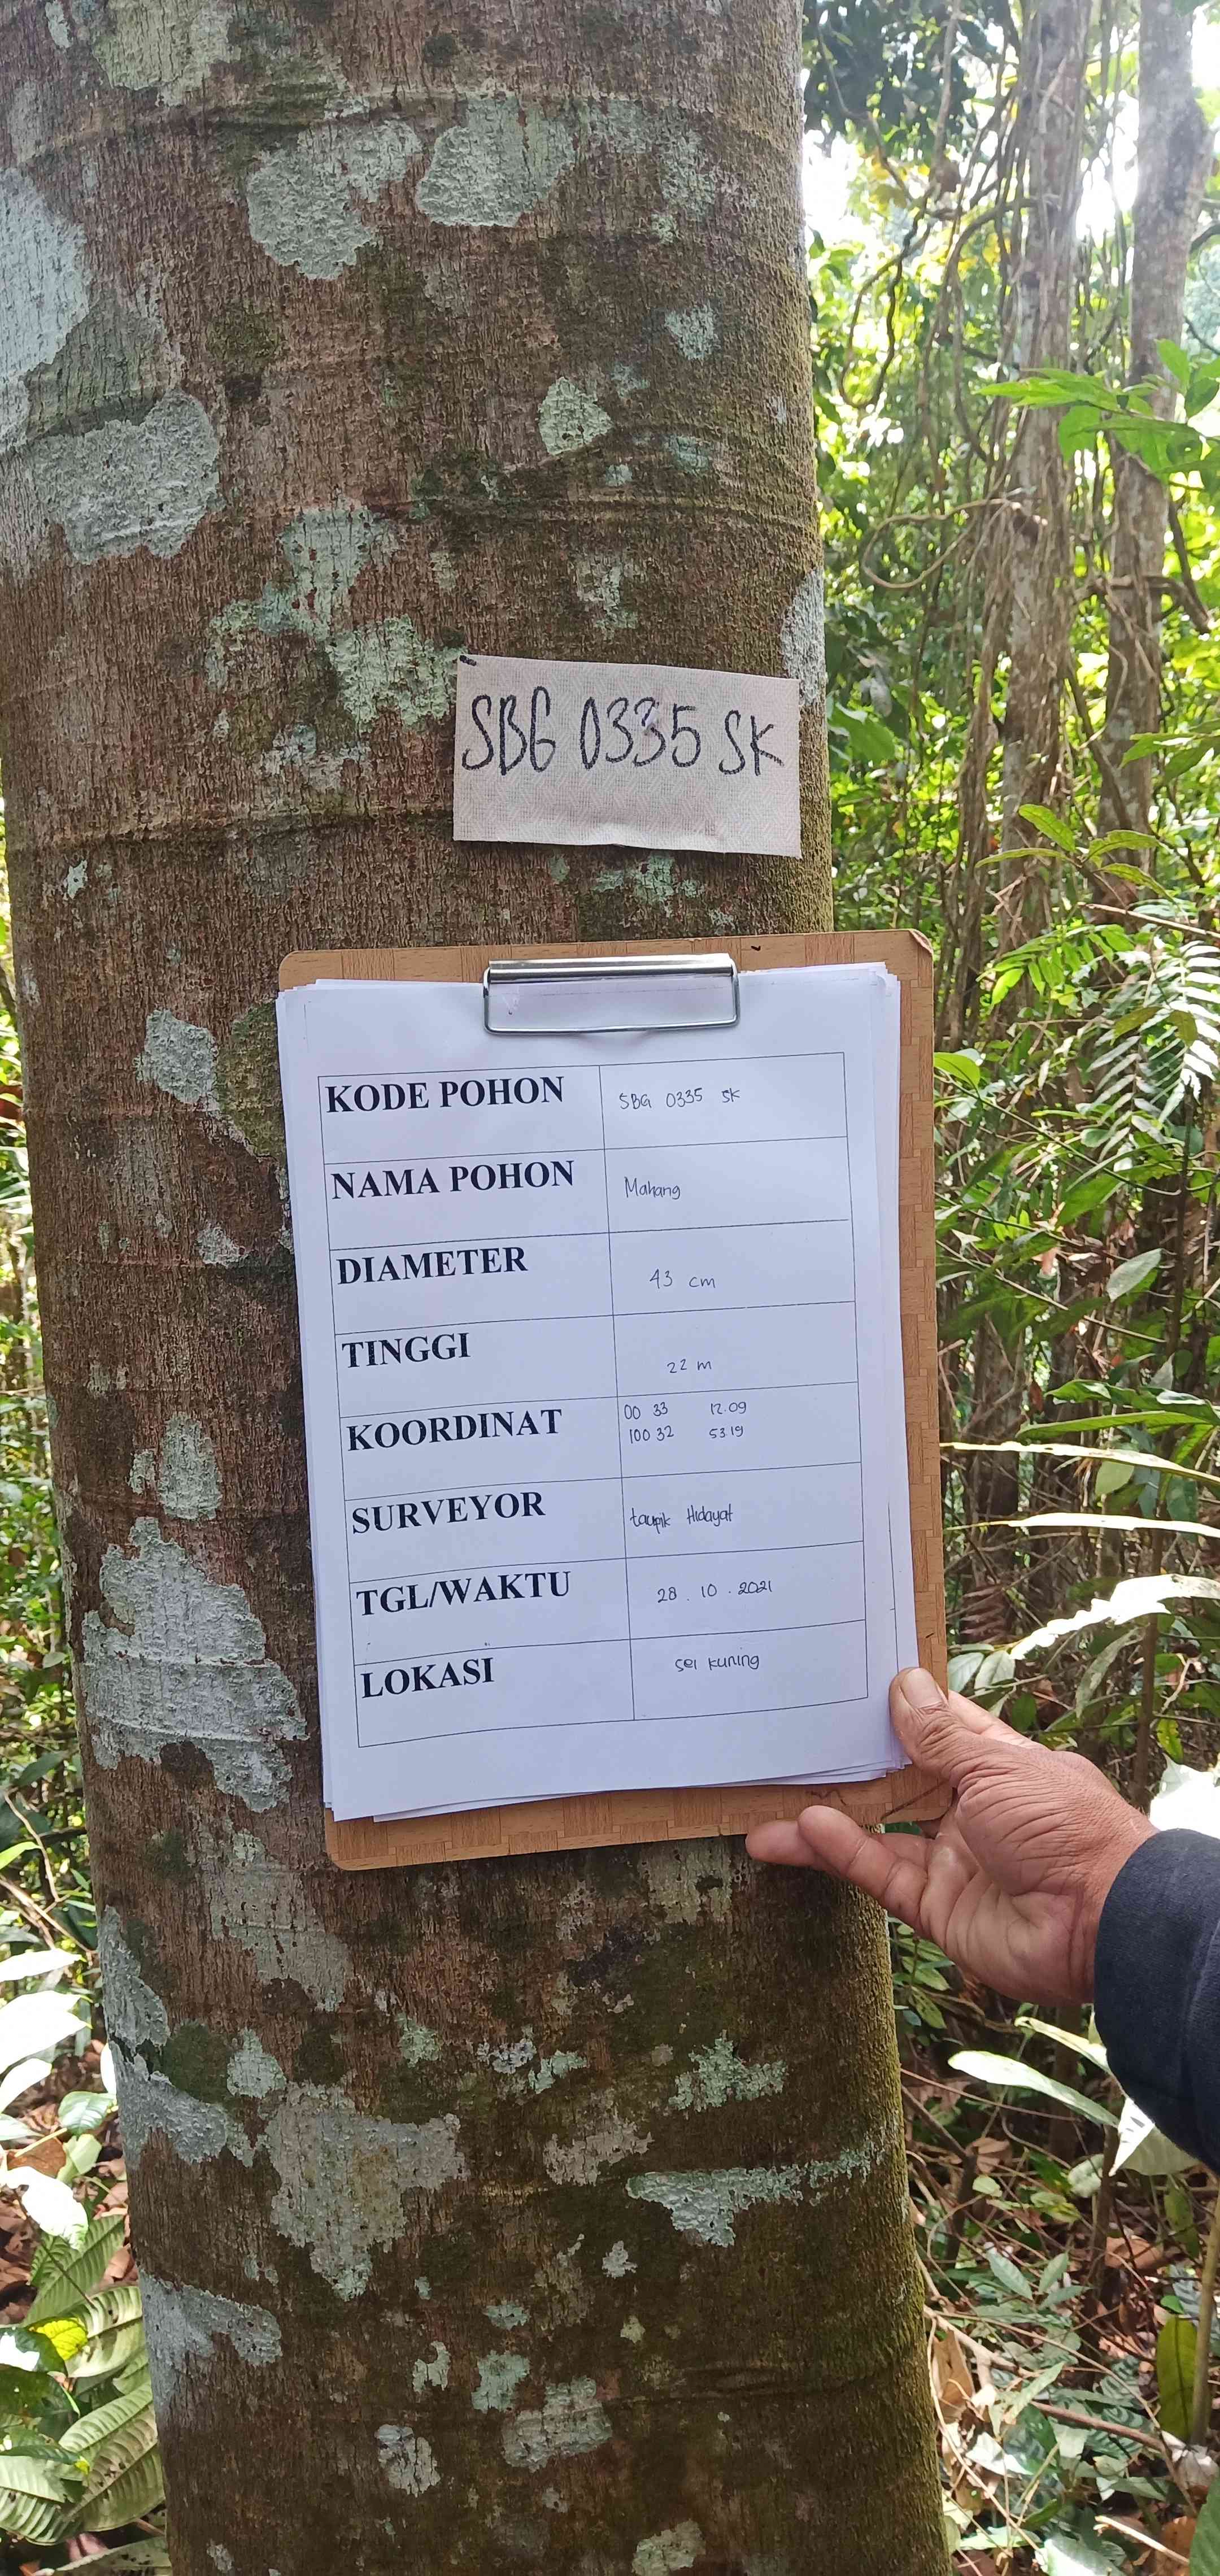 SBG 0335 SK
KODE POHON SBG 0335 SK
NAMA POHON Mahang
DIAMETER 43 cm
TINGGI 22 m
KOORDINAT 00 33 12.09
100 32 53 19
SURVEYOR taupik Hidayat
TGL/WAKTU 28.10.2021
LOKASI sei kuning